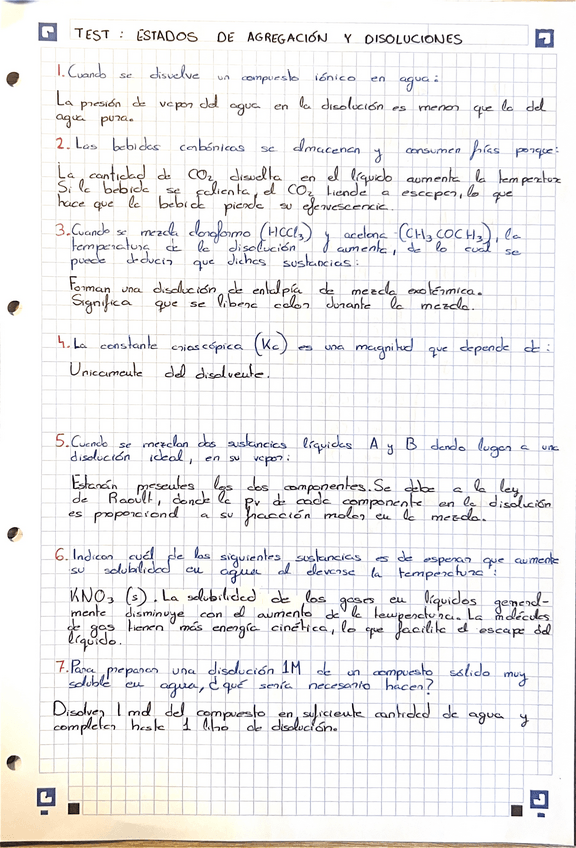 TEST: ESTADOS DE AGREGACIÓN Y DISOLUCIONES
1. Cuando se disuelve un compuesto iónico en agua:
La presión de vapor del agua en la disolución es menor que la del
agua pura.
2. Las bebidas carbónicas se almacenan y consumen frías porque:
La cantidad de CO2 disuelta en el líquido aumenta la temperatura
Si la bebida se calienta, el CO2 tiende a escapar, lo que
hace que la bebida pierda su efervescencia.
3. Cuando se mezcla cloroformo (HCCl3) y acetona (CH3COCH3), la
temperatura de la disolución aumenta, de lo cual se
puede deducir que dichas sustancias:
Forman una disolución de entalpía de mezcla exotérmica.
Significa que se libera calor durante la mezcla.
4. La constante crioscópica (Kc) es una magnitud que depende de:
Unicamente del disolvente.
5. Cuando se mezclan dos sustancias líquidas A y B dando lugar a una
disolución ideal, en su vapor:
Estarán presentes los dos componentes. Se debe a la ley
de Raoult, donde la Pv de cada componente en la disolución
es proporcional a su fracción molar en la mezcla.
6. Indicar cuál de las siguientes sustancias es de esperar que aumente
su solubilidad en agua al elevarse la temperatura:
KNO3 (s). La solubilidad de los gases en líquidos general-
mente disminuye con el aumento de la temperatura. La molécules
de gas tienen más energía cinética, lo que facilita el escape del
líquido.
7. Para preparar una disolución 1M de un compuesto sólido muy
soluble en agua, ¿qué sería necesario hacer?
Disolver 1 mol del compuesto en suficiente cantidad de agua y
completar hasta 1 litro de disolución.